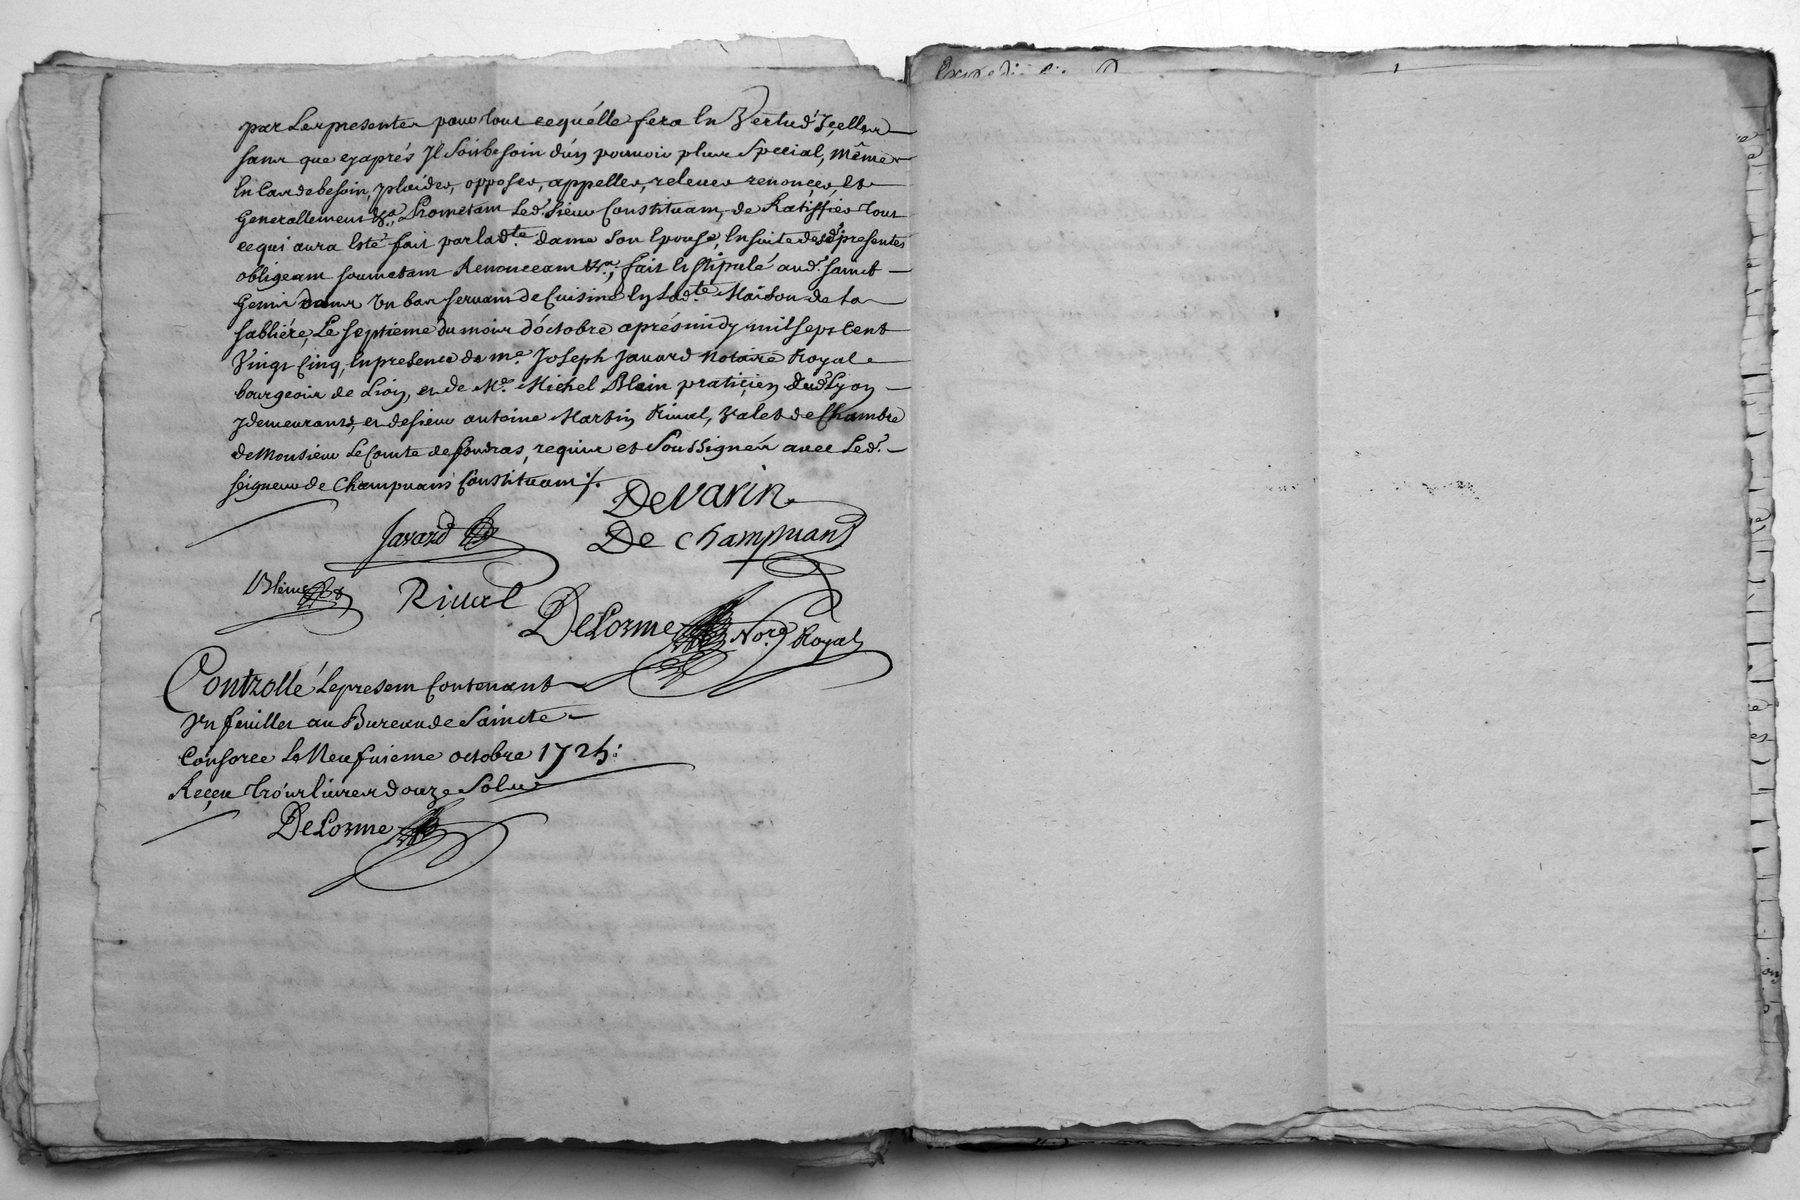 par Les presentes pour tout cequélle fera En Vertu d'Jcelles
sans que cyaprés Jl Soit besoin dún pouvoir plus Special, même
En Cas de besoin, plaider, opposer, appeller, relever renoncer, Et
Generallement &a. Prometant Led. Sieur Constituant, de Ratiffier Tout
ce qui aura Esté fait par lad.te dame Son Epouse, En suite desd. presentes
obligeant soumetant Renonceant &a.; fait Et stipulé aud. Sainct
Genis dans Un bas servant de Cuisine En Lad.te Maison de la
Sabliére, Le Septiéme du mois d'octobre aprés midy mil sept Cent
Vingt Cinq, En presence de me Joseph Javard Notaire Royal
bourgeois de Lion, et de Me. Michel Blein praticien dud. Lyon
y demeurants, et de sieur antoine Martin Rival, Valet de Chambre
de Monsieur Le Comte de foudras, requis et Soussignés avec Led.
seigneur de Champuans Constituant ./.
De Varin
Javard De Champuans
Blein Rival
DeLorme Nore. Royal
Controllé Le present Contenant
Vn feuillet au Bureau de Saincte
Consorce Le Neufuieme octobre 1725:
Reçeu Trois liures douze Sols
DeLorme